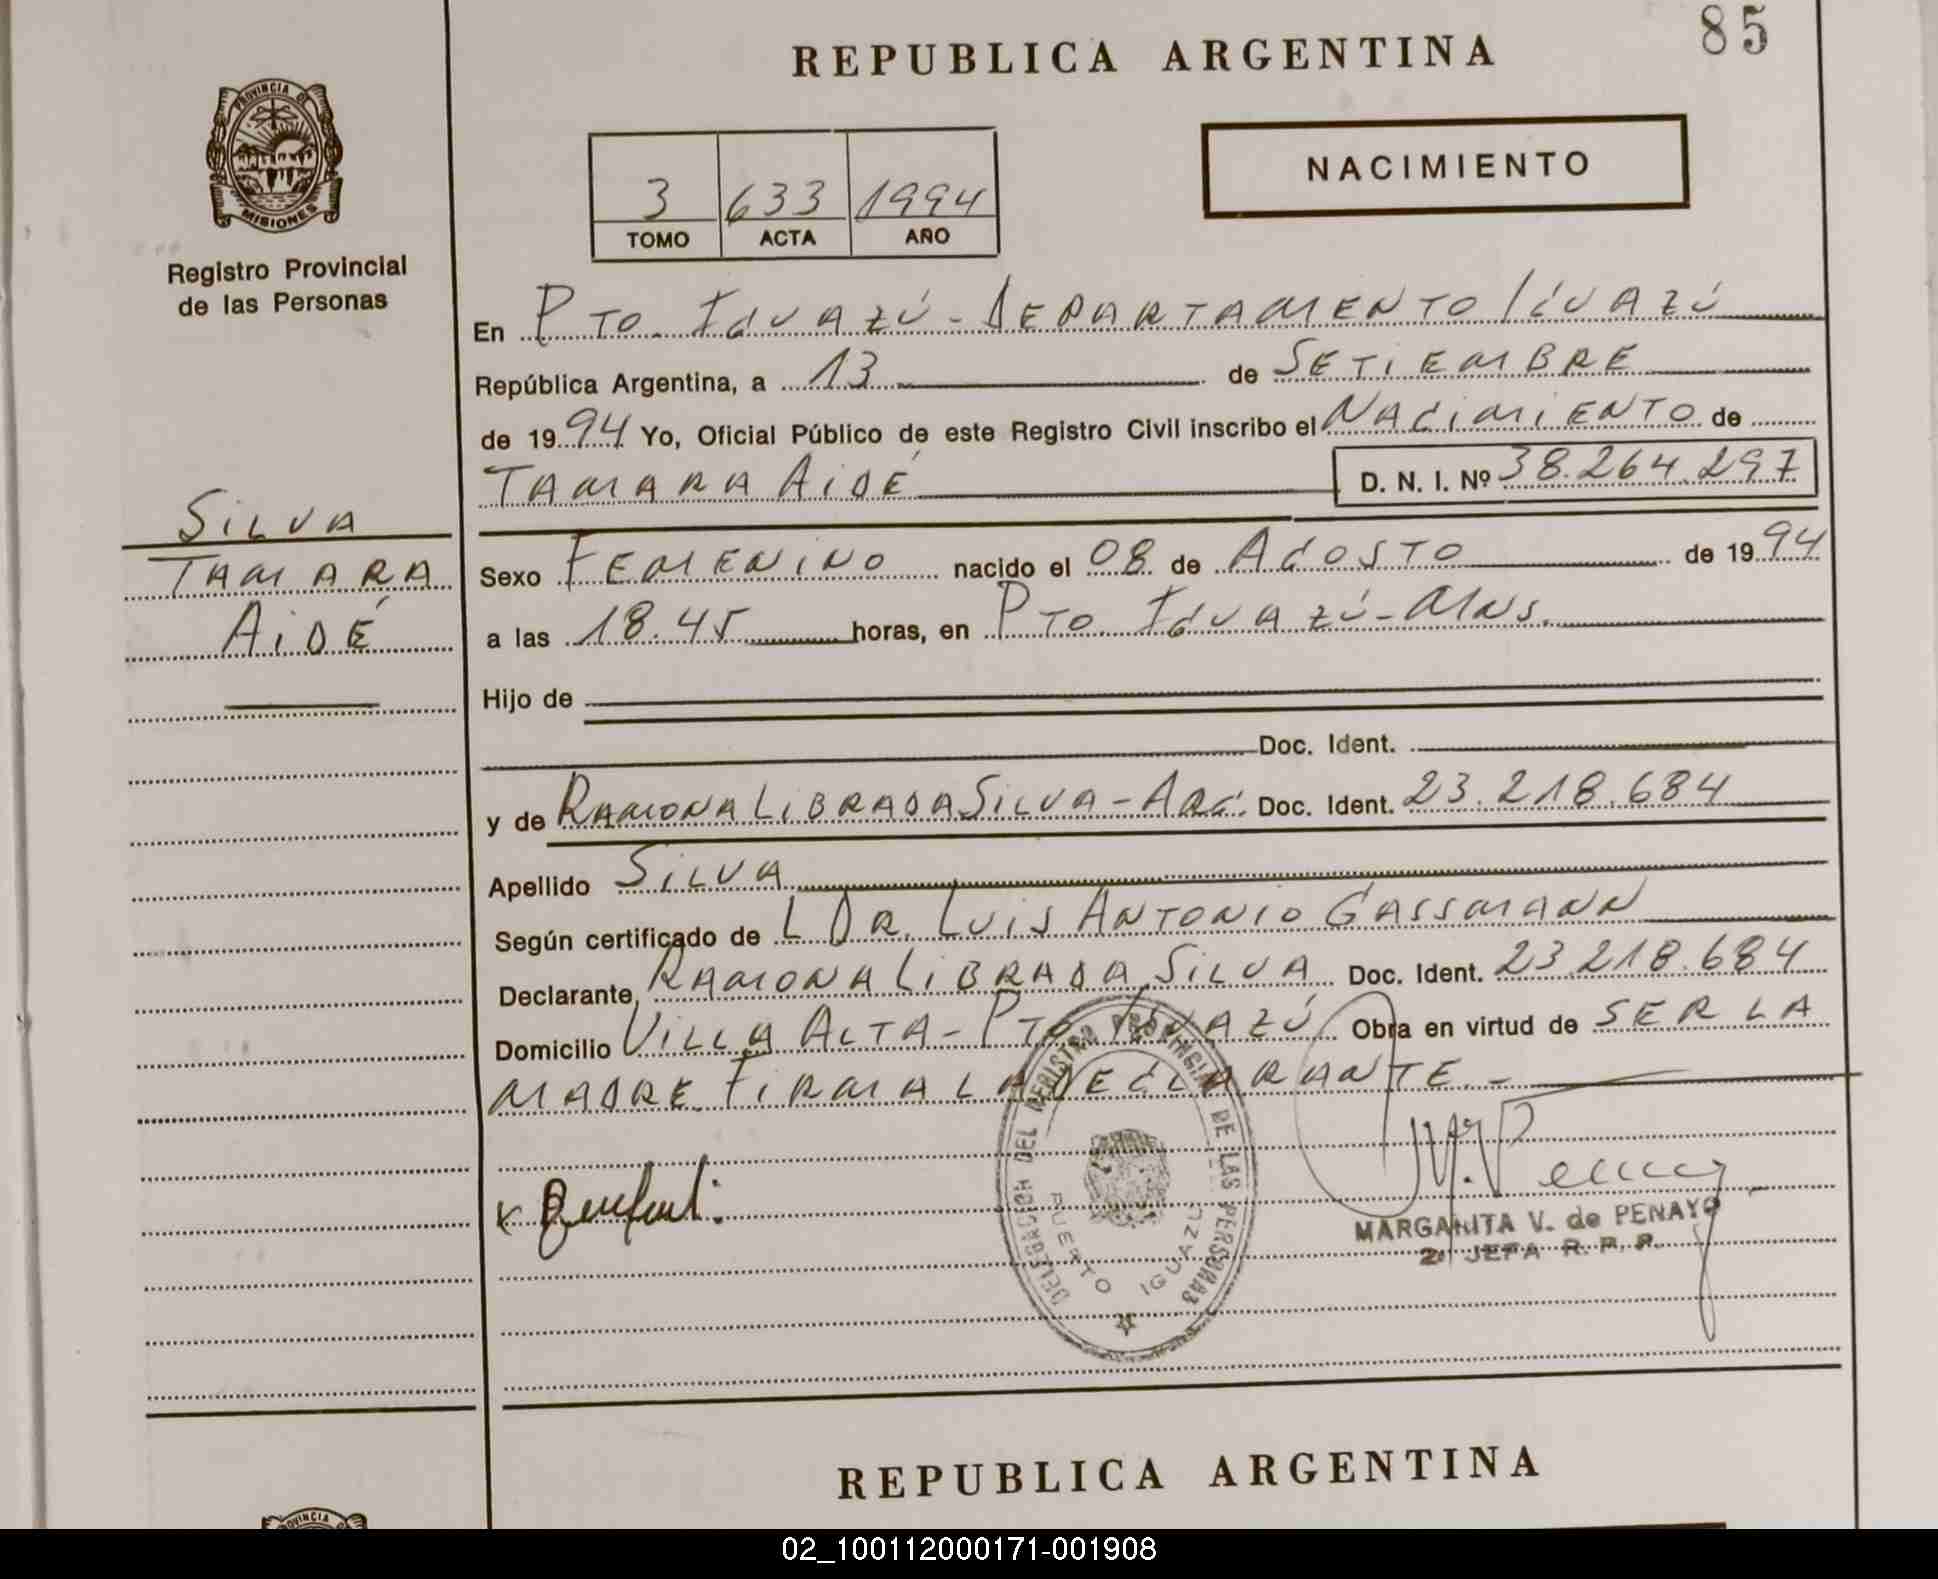 85
REPUBLICA ARGENTINA
PROVINCIA DE
MISIONES
Registro Provincial
de las Personas
NACIMIENTO
3 633 1994
TOMO ACTA AÑO
En PTO. IGUAZÚ - DEPARTAMENTO IGUAZÚ
República Argentina, a 13 de SETIEMBRE
de 1994 Yo, Oficial Público de este Registro Civil inscribo el NACIMIENTO de
TAMARA AIDÉ D. N. I. Nº 38.264.297
SILVA
TAMARA
AIDÉ
Sexo FEMENINO nacido el 08 de AGOSTO de 1994
a las 18.45 horas, en PTO. IGUAZÚ - MNS.
Hijo de
Doc. Ident.
y de RAMONA LIBRADA SILVA - ARG. Doc. Ident. 23.218.684
Apellido SILVA
Según certificado de L DR. LUIS ANTONIO GASSMANN
Declarante RAMONA LIBRADA SILVA Doc. Ident. 23.218.684
Domicilio VILLA ALTA - PTO. IGUAZÚ Obra en virtud de SER LA
MADRE. FIRMA LA DECLARANTE. -
DEL REGISTRO PROVINCIAL DE LAS PERSONAS
PUERTO IGUAZU
MARGARITA V. de PENAYO
2º JEFA R. P. P.
REPUBLICA ARGENTINA
PROVINCIA
02_100112000171-001908